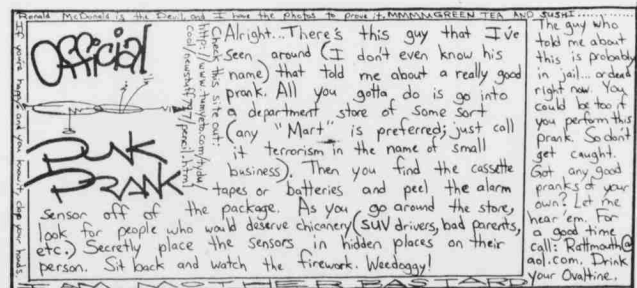 Ronald McDonald is the Devil, and I have the photos to prove it. MMMMM GREEN TEA AND SUSHI......
If you're happy and you know it, clap your hands.
Official
PUNK
PRANK
Check this site out:
Alright...There's this guy that I've
seen around (I don't even know his
name) that told me about a really good
prank. All you gotta do is go into
a department store of some sort
(any "Mart" is preferred; just call
it terrorism in the name of small
business). Then you find the cassette
tapes or batteries and peel the alarm
sensor off of the package. As you go around the store,
look for people who would deserve chicanery (SUV drivers, bad parents,
etc.) Secretly place the sensors in hidden places on their
person. Sit back and watch the firework. Weedoggy!
The guy who
told me about
this is probably
in jail... or dead
right now. You
could be too if
you perform this
prank. So don't
get caught.
Got any good
pranks of your
own? Let me
hear 'em. For
a good time
call: Rattmouth@
aol.com. Drink
your Ovaltine.
I AM MOTHER BASTARD